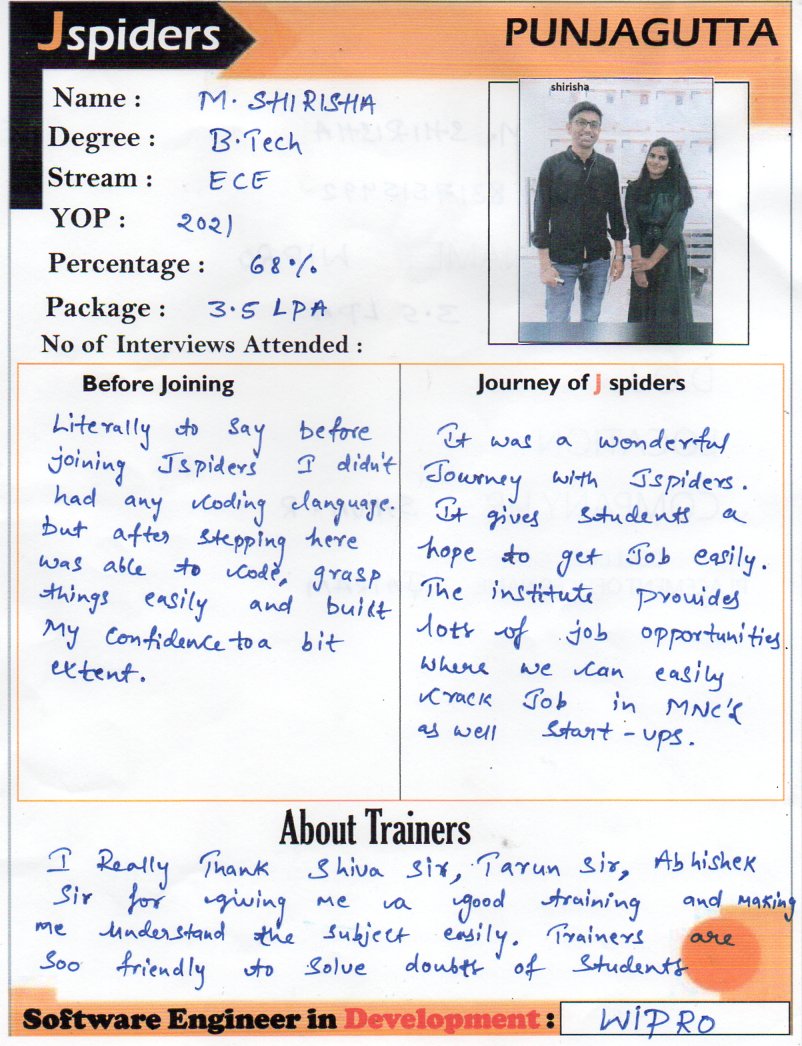 Jspiders
PUNJAGUTTA
shirisha
Name : M. SHIRISHA
Degree : B.Tech
Stream : ECE
YOP : 2021
Percentage : 68%
Package : 3.5 LPA
No of Interviews Attended :
Before Joining
Literally to say before
joining Jspiders I didn't
had any coding language.
but after stepping here
was able to code, grasp
things easily and built
My Confidence to a bit
extent.
Journey of J spiders
It was a wonderful
Journey with Jspiders.
It gives students a
hope to get Job easily.
The institute provides
lots of job opportunities
where we can easily
crack Job in MNC's
as well start-ups.
About Trainers
I Really Thank Shiva Sir, Tarun Sir, Abhishek
Sir for giving me a good training and making
me understand the subject easily. Trainers are
soo friendly to solve doubts of students
Software Engineer in Development : WIPRO